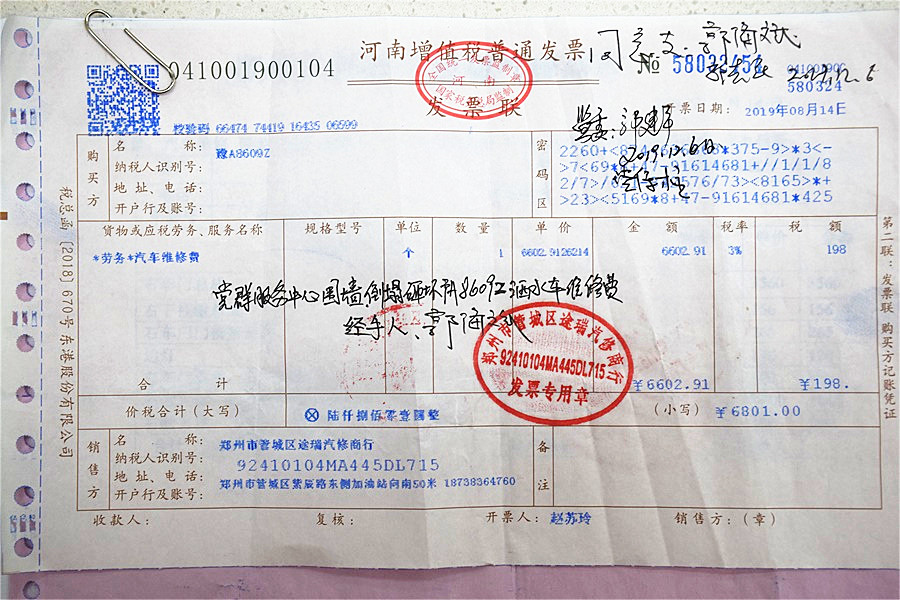 041001900104
河南增值税普通发票
发票联
同意支
No
041001900
580324
校验码 66474 74419 16435 06599
开票日期: 2019年08月14日
2019.12.6日
购买方
名 称: 豫A8609Z
纳税人识别号:
地址、电话:
开户行及账号:
密码区
2260+<
*375-9>*3<-
>7<69*
-47-91614681+//1/1/8
2/7>/
576/73><8165>*+
>23><5169*8+47-91614681*425
货物或应税劳务、服务名称 规格型号 单位 数量 单价 金额 税率 税额
*劳务*汽车维修费 个 1 6602.9126214 6602.91 3% 198
党群服务中心围墙倒塌砸坏豫8609Z洒水车维修费
经手人、郭陶斌
郑州市管城区途瑞汽修商行
92410104MA445DL715
发票专用章
合计 ¥6602.91 ¥198.
价税合计(大写) ⊗ 陆仟捌佰零壹圆整 (小写) ¥6801.00
销售方
名 称: 郑州市管城区途瑞汽修商行
纳税人识别号: 92410104MA445DL715
地址、电话: 郑州市管城区紫辰路东侧加油站向南50米 18738364760
开户行及账号:
备注
收款人: 复核: 开票人: 赵苏玲 销售方:(章)
税总函〔2018〕670号东港股份有限公司
第二联:发票联 购买方记账凭证